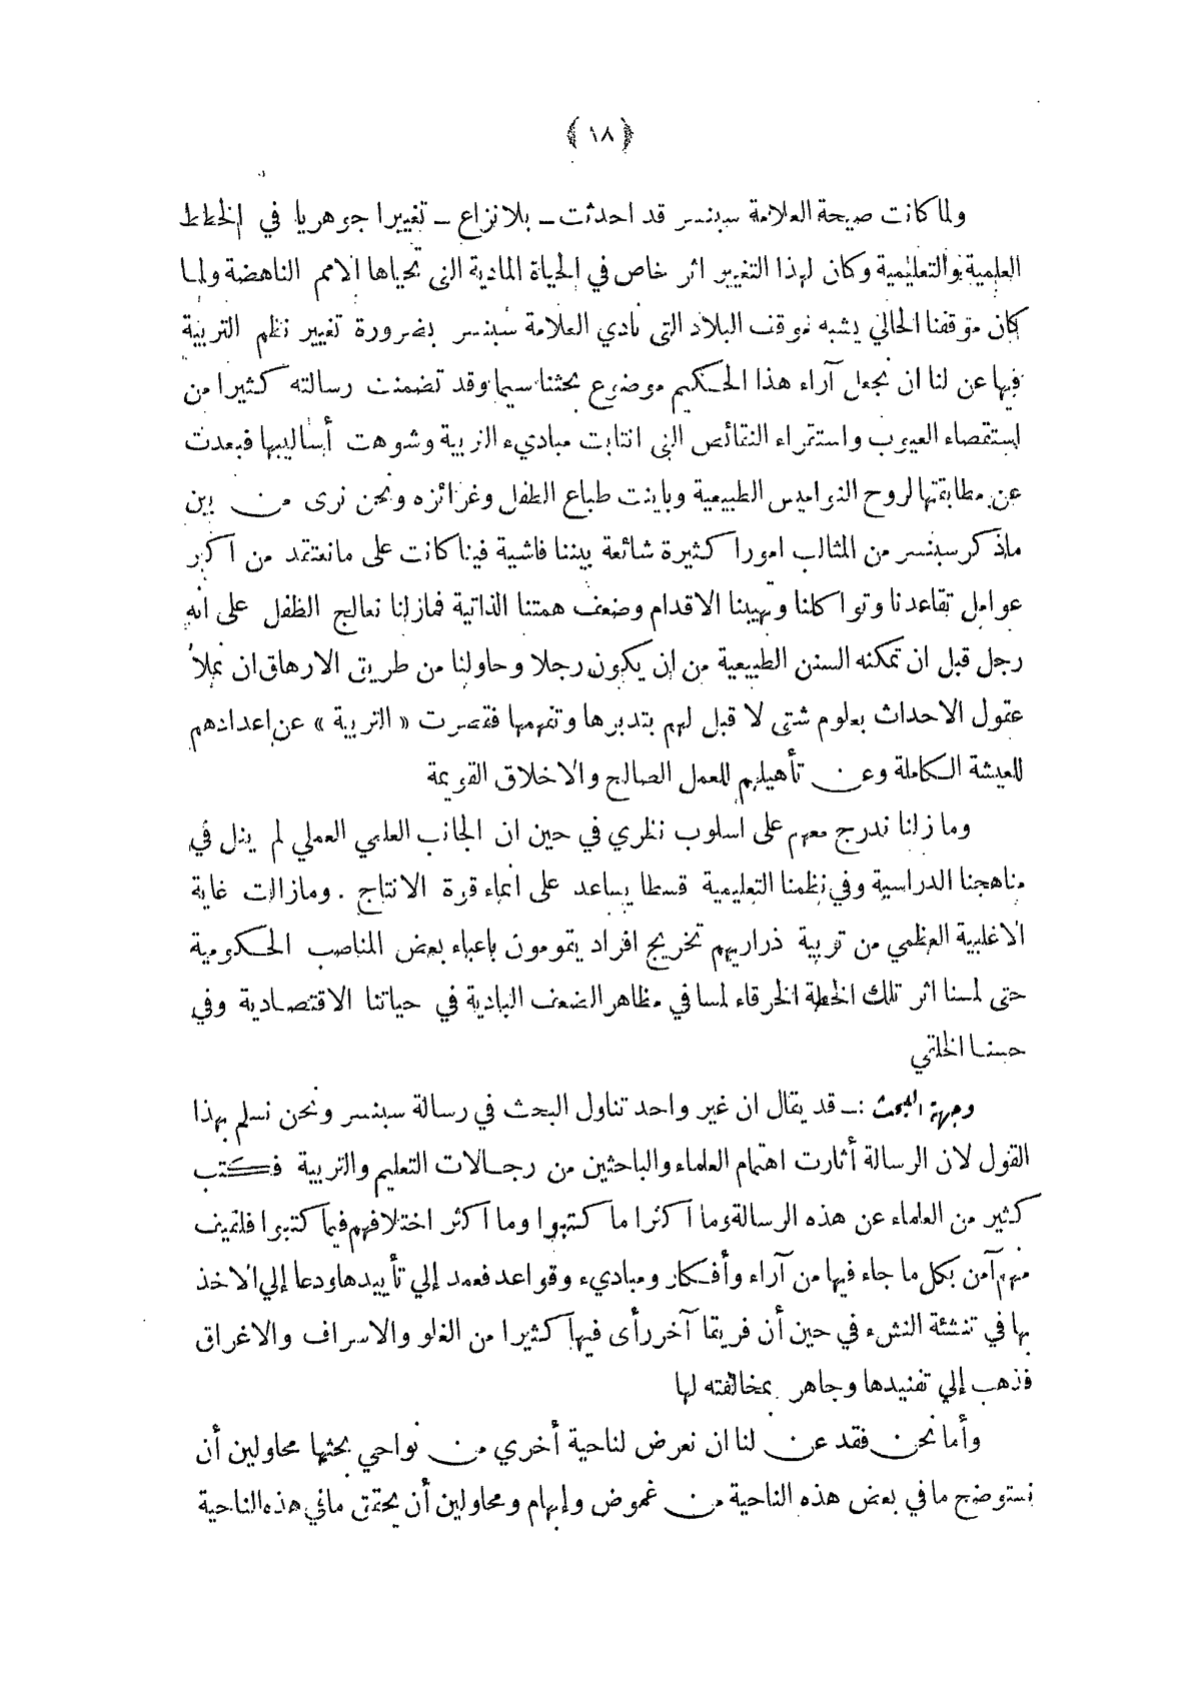 ﴿ ١٨ ﴾
ولما كانت صيحة العلامة سبنسر قد احدثت ــ بلا نزاع ــ تغييرا جوهريا في الخطط
العلمية والتعليمية وكان لهذا التغيير اثر خاص في الحياة المادية التي تحياها الامم الناهضة ولما
كان موقفنا الحالي يشبه موقف البلاد التى نادي العلامة سبنسر بضرورة تغيير نظم التربية
فيها عن لنا ان نجعل آراء هذا الحكيم موضوع بحثنا سيما وقد تضمنت رسالته كثيرا من
استقصاء العيوب واستقراء النقائص التى انتابت مباديء التربية وشوهت أساليبها فبعدت
عن مطابقتها لروح النواميس الطبيعية وباينت طباع الطفل وغرائزه ونحن نرى من بين
ماذكر سبنسر من المثالب امورا كثيرة شائعة بيننا فاشية فينا كانت على مانعتقد من اكبر
عوامل تقاعدنا وتواكلنا وتهيبنا الاقدام وضعف همتنا الذاتية فمازلنا نعالج الطفل على انه
رجل قبل ان تمكنه السنن الطبيعية من ان يكون رجلا وحاولنا من طريق الارهاق ان نملأ
عقول الاحداث بعلوم شتى لا قبل لهم بتدبرها وتفهمها فقصرت « التربية » عن اعدادهم
للعيشة الكاملة وعن تأهيلهم للعمل الصالح والاخلاق القويمة
وما زلنا ندرج معهم على اسلوب نظري في حين ان الجانب العلمي العملي لم ينل في
مناهجنا الدراسية وفي نظمنا التعليمية قسطا يساعد على انماء قوة الانتاج . ومازالت غاية
الاغلبية العظمي من تربية ذراريهم تخريج افراد يقومون باعباء بعض المناصب الحكومية
حتى لمسنا اثر تلك الخطة الخرقاء لمسا في مظاهر الضعف البادية في حياتنا الاقتصادية وفي
حسنا الخلقي
وجهة البحث :ــ قد يقال ان غير واحد تناول البحث في رسالة سبنسر ونحن نسلم بهذا
القول لان الرسالة أثارت اهتمام العلماء والباحثين من رجالات التعليم والتربية فكتب
كثير من العلماء عن هذه الرسالة وما اكثرا ما كتبوا وما اكثر اختلافهم فيما كتبوا فلفيف
منهم آمن بكل ما جاء فيها من آراء وأفكار ومباديء وقواعد فعمد إلي تأييدها ودعا إلي الاخذ
بها في تنشئة النشء في حين أن فريقا آخر رأى فيها كثيرا من الغلو والاسراف والاغراق
فذهب إلي تفنيدها وجاهر بمخالفته لها
وأما نحن فقد عن لنا ان نعرض لناحية أخري من نواحي بحثها محاولين أن
نستوضح ما في بعض هذه الناحية من غموض وإبهام ومحاولين أن يحقق مافي هذه الناحية